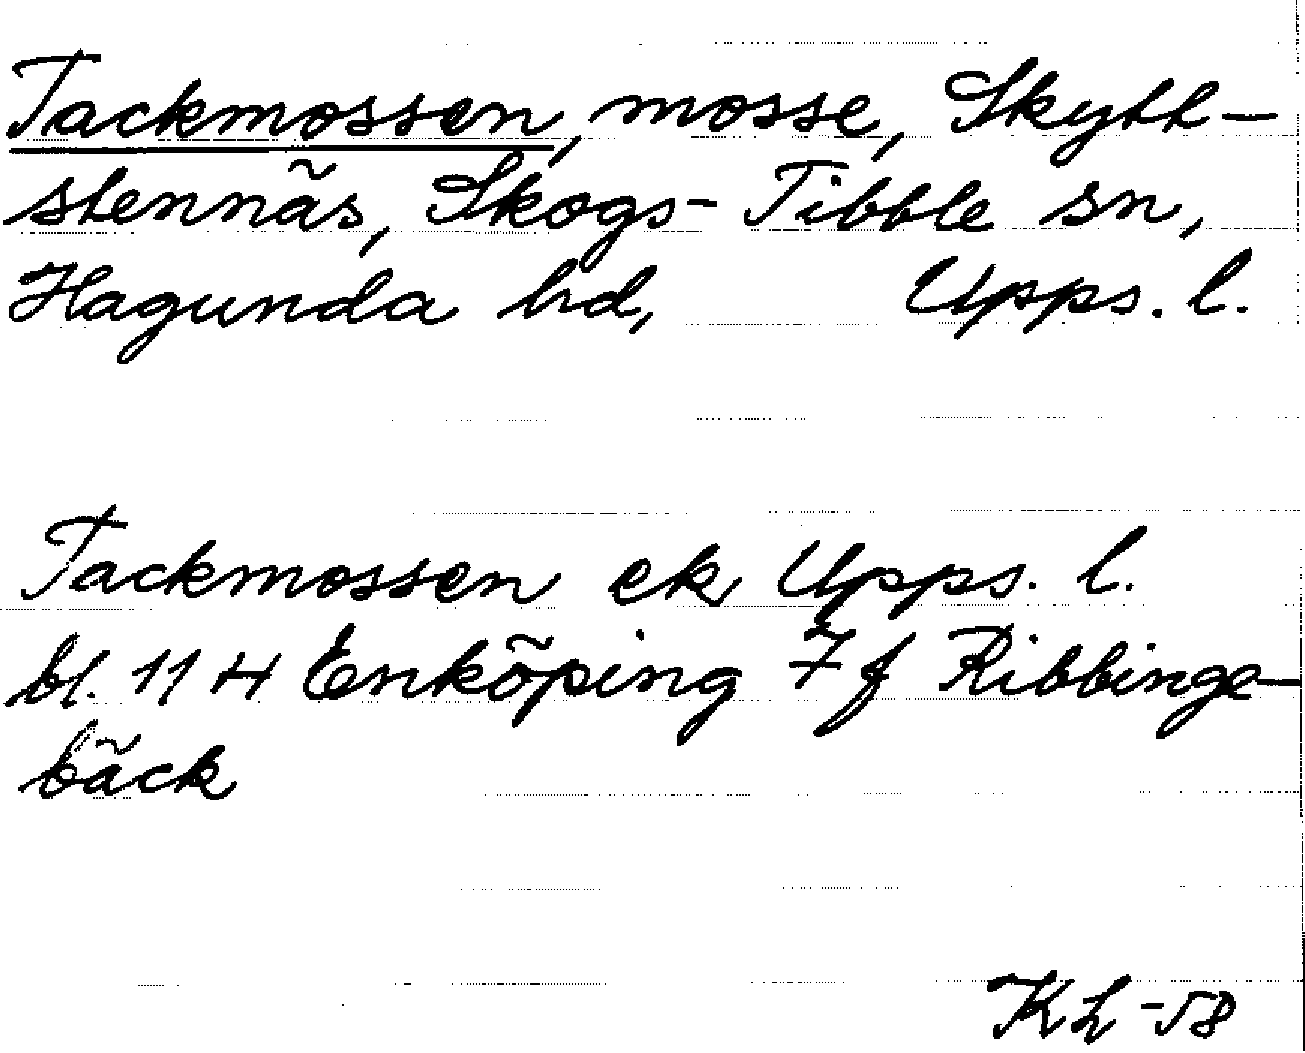 Tackmossen, mosse, Skytt-
stennäs, Skogs-Tibble sn,
Hagunda hd, Upps. l.
Tackmossen ek Upps. l.
bl. 114 Enköping 7f Ribbinge-
bäck
KL -58